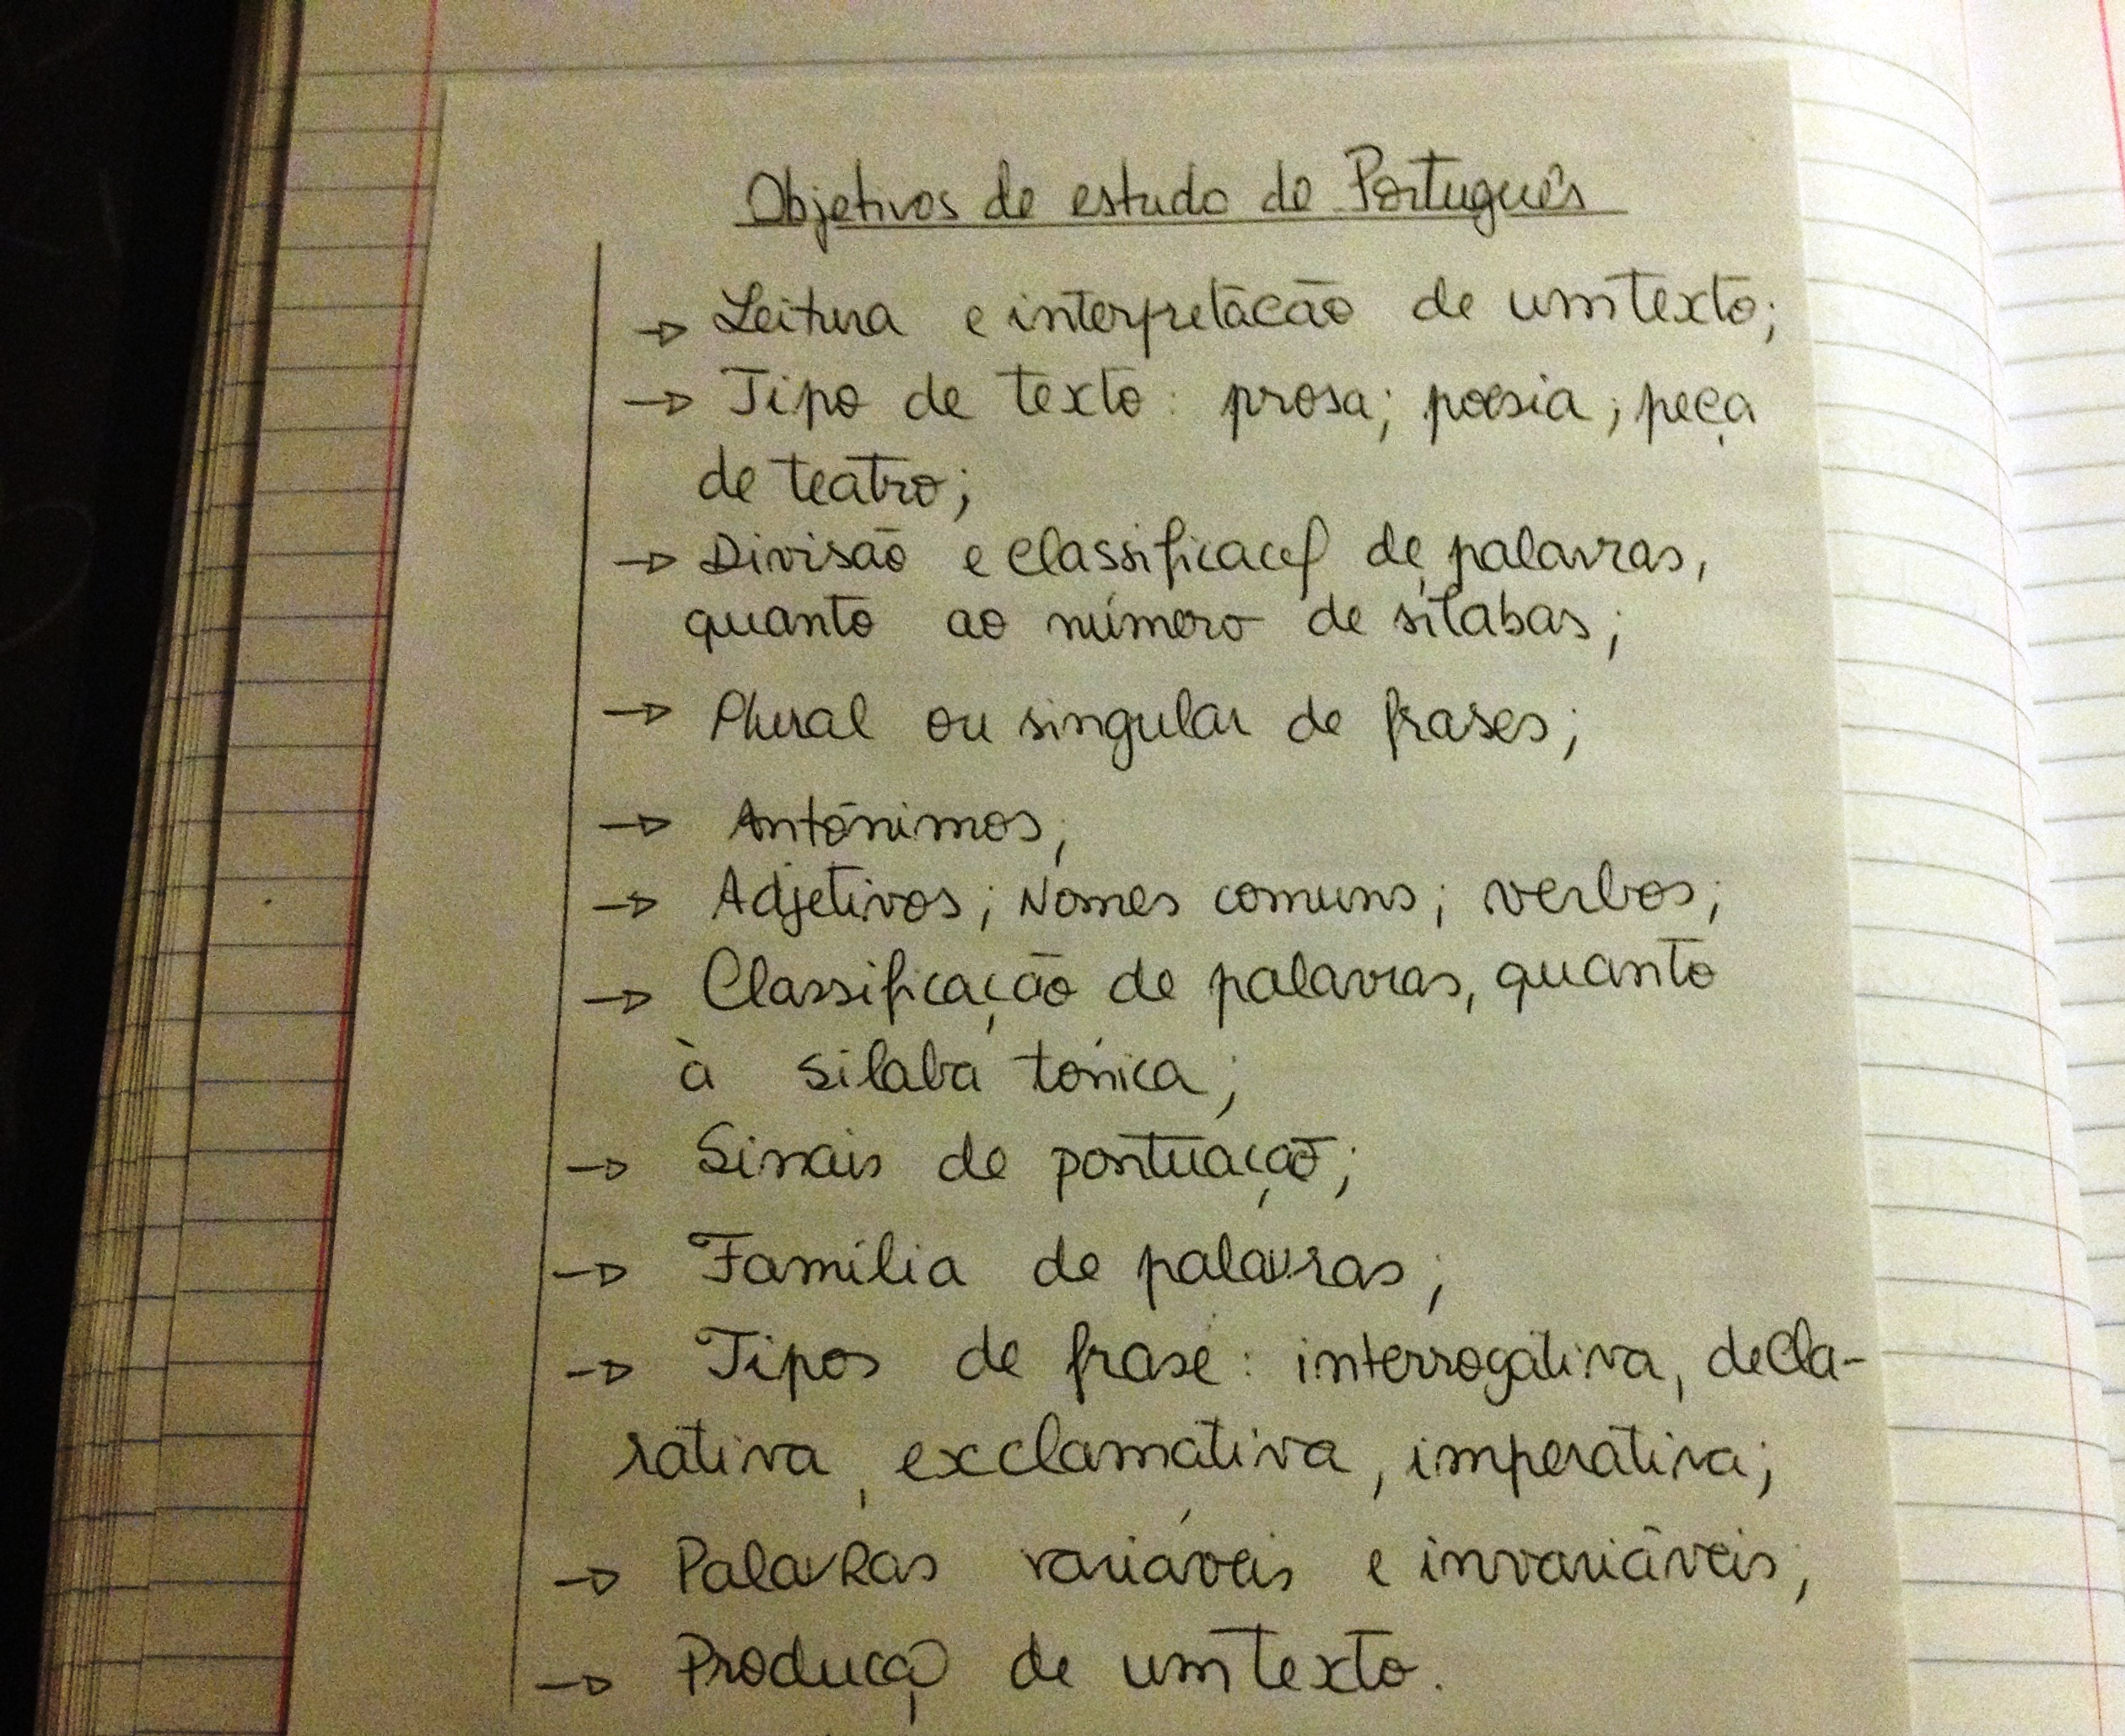 Objetivos de estudo de Português
→ Leitura e interpretação de um texto;
→ Tipo de texto: prosa; poesia; peça
de teatro;
→ Divisão e classificaç de palavras,
quanto ao número de sílabas;
→ Plural ou singular de frases;
→ Antónimos;
→ Adjetivos; Nomes comuns; verbos;
→ Classificação de palavras, quanto
à sílaba tónica;
→ Sinais de pontuação;
→ Família de palavras;
→ Tipos de frase: interrogativa, decla-
rativa, exclamativa, imperativa;
→ Palavras variáveis e invariáveis;
→ Produção de um texto.